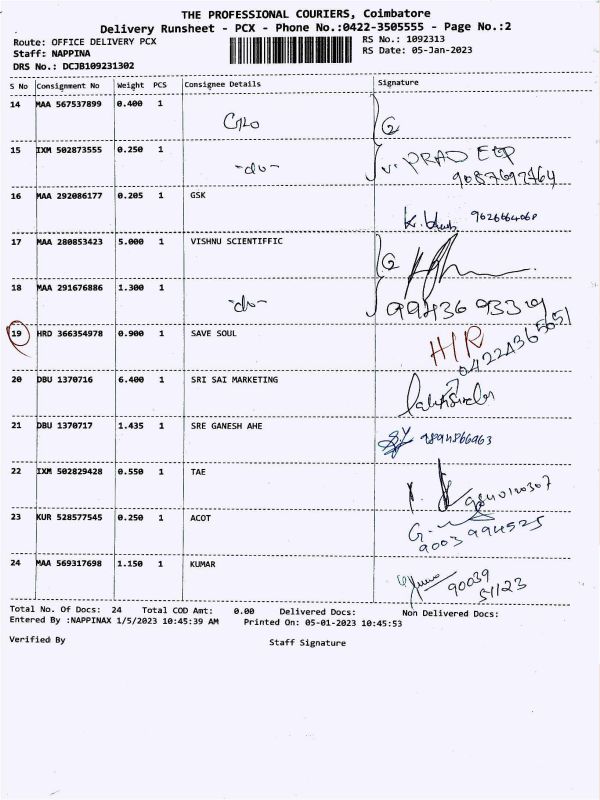 THE PROFESSIONAL COURIERS, Coimbatore
Delivery Runsheet - PCX - Phone No.:0422-3505555 - Page No.:2
Route: OFFICE DELIVERY PCX
Staff: NAPPINA
DRS No.: DCJB109231302
RS No.: 1092313
RS Date: 05-Jan-2023
S No Consignment No Weight PCS Consignee Details Signature
14 MAA 567537899 0.400 1
15 IXM 502873555 0.250 1 -do- V. PRADEEP
9087692764
16 MAA 292086177 0.205 1 GSK
17 MAA 280853423 5.000 1 VISHNU SCIENTIFFIC
18 MAA 291676886 1.300 1 -do-
19 HRD 366354978 0.900 1 SAVE SOUL H/R
20 DBU 1370716 6.400 1 SRI SAI MARKETING
21 DBU 1370717 1.435 1 SRE GANESH AHE 9894866963
22 IXM 502829428 0.550 1 TAE 9840120307
23 KUR 528577545 0.250 1 ACOT
9003994525
24 MAA 569317698 1.150 1 KUMAR 90039
51123
Total No. Of Docs: 24 Total COD Amt: 0.00 Delivered Docs: Non Delivered Docs:
Entered By :NAPPINAX 1/5/2023 10:45:39 AM Printed On: 05-01-2023 10:45:53
Verified By Staff Signature